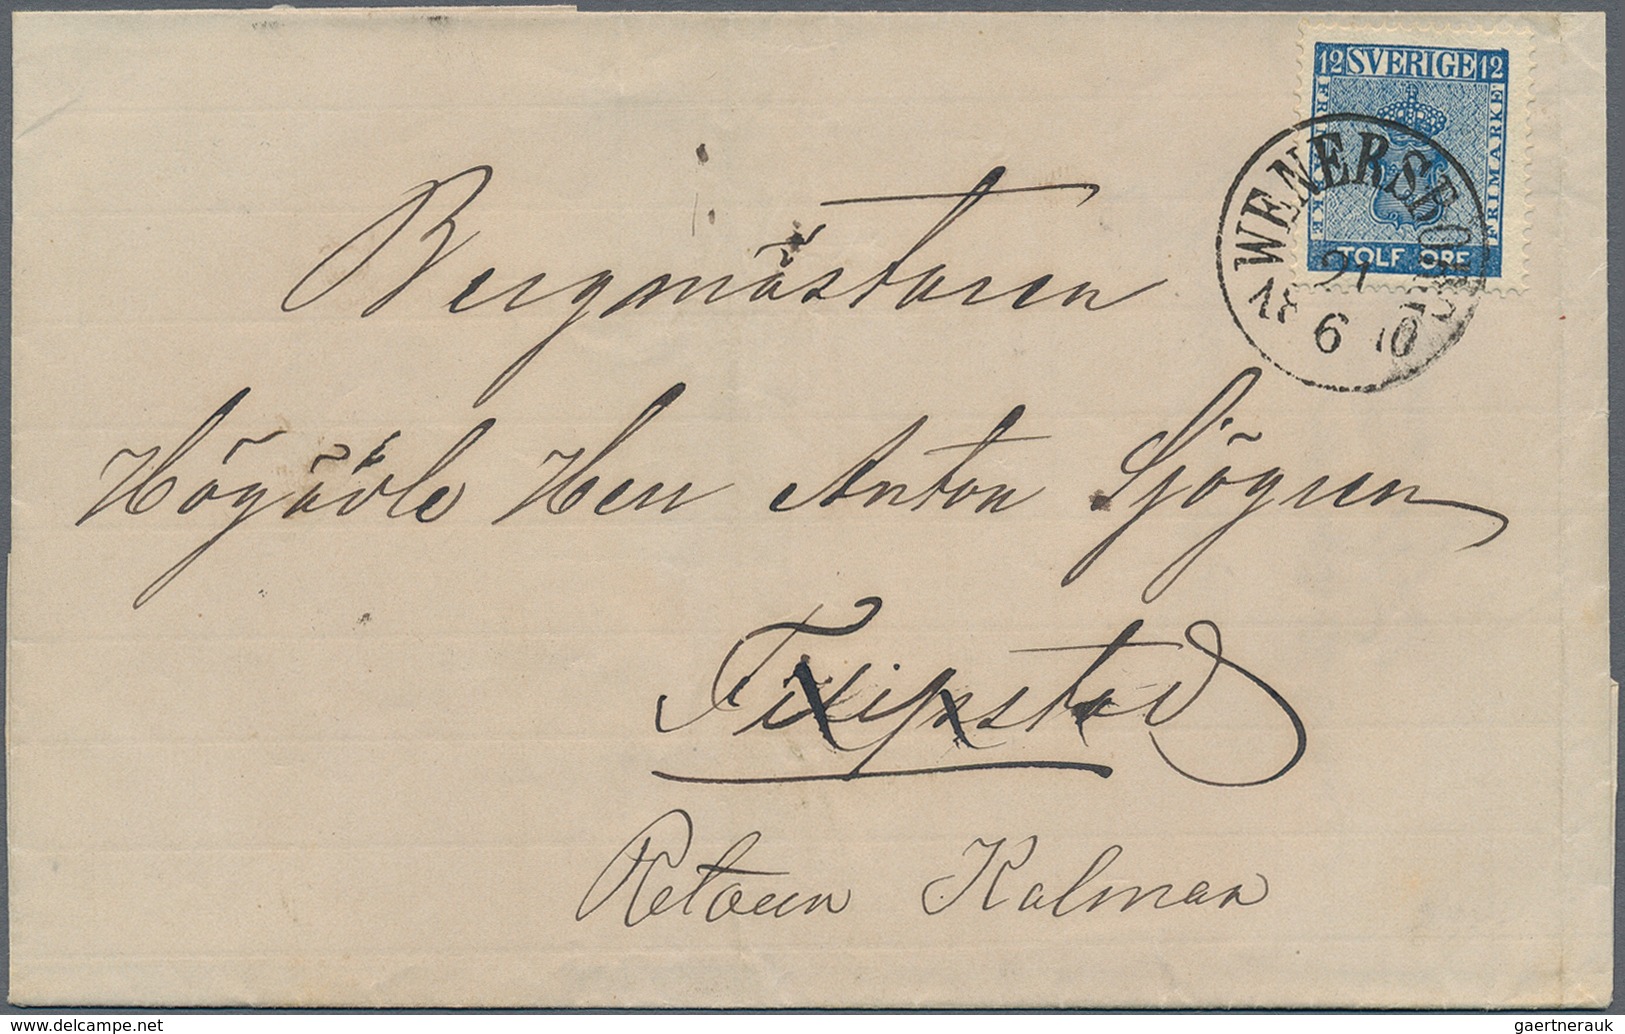 12 SVERIGE 12
FRIMARKE
FRIMARKE
TOLF ÖRE
WENERSBORG
21
6
18
Bergmästaren
Högädle Herr Anton Sjögren
Filipstad
Retour Kalmar
www.delcampe.net
gaertnerauk